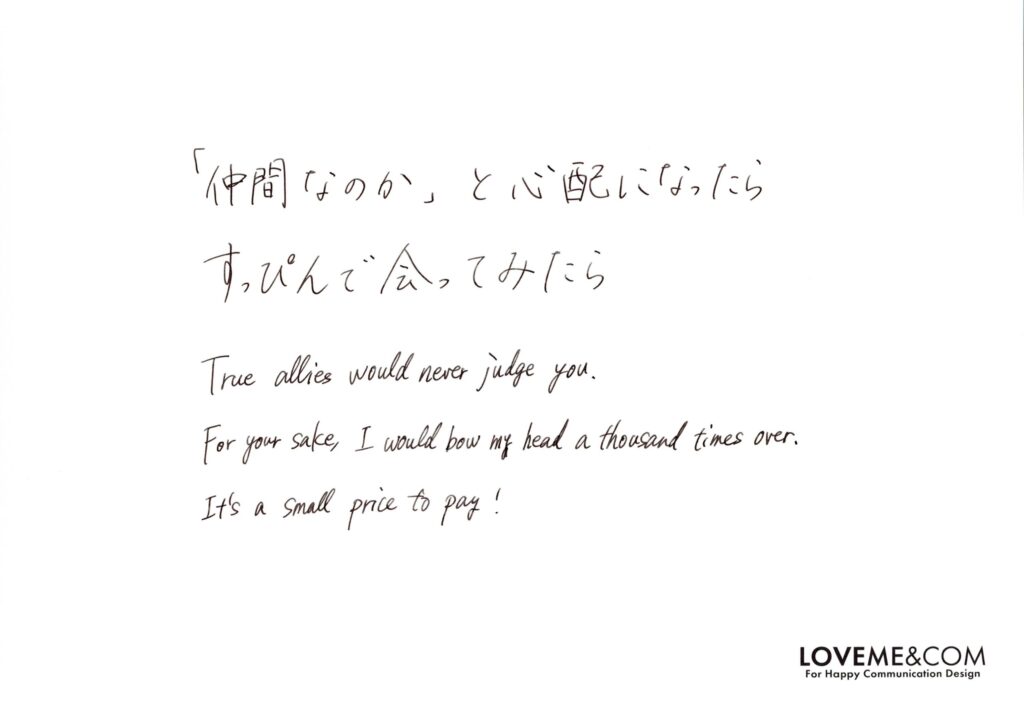 「仲間なのか」と心配になったら
すっぴんで会ってみたら
True allies would never judge you.
For your sake, I would bow my head a thousand times over.
It's a small price to pay!
LOVEME&COM
For Happy Communication Design